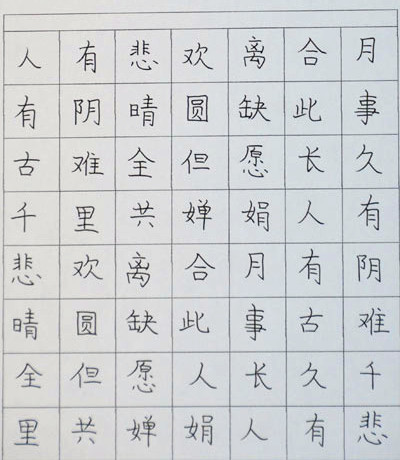 人有悲欢离合月
有阴晴圆缺此事
古难全但愿长久
千里共婵娟人有
悲欢离合月有阴
晴圆缺此事古难
全但愿人长久千
里共婵娟人有悲